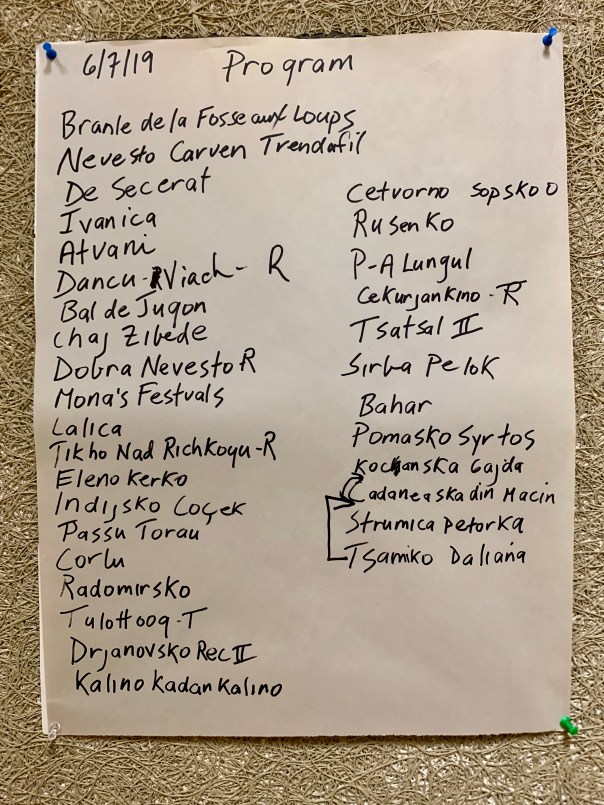 6/7/19 Program
Branle de la Fosse aux Loups
Nevesto Carven Trendafil
De Secerat
Ivanica
Atvani
Dancu - Vlach - R
Bal de Jugon
Chaj Zibede
Dobra Nevesto R
Mona's Festvals
Lalica
Tikho Nad Richkoyu - R
Eleno Kerko
Indijsko Coçek
Passu Torau
Corlu
Radomirsko
Tulottoog - T
Drjanovsko Rec II
Kalino Kadan Kalino
Cetvorno Sopsko O
Rusenko
P-A Lungul
Cekurjankino - R
Tsatsal II
Sirba Pe loK
Bahar
Pomasko Syrtos
Kochanska Gajda
Cadaneaska din Macin
Strumica Petorka
Tsamiko Daliana